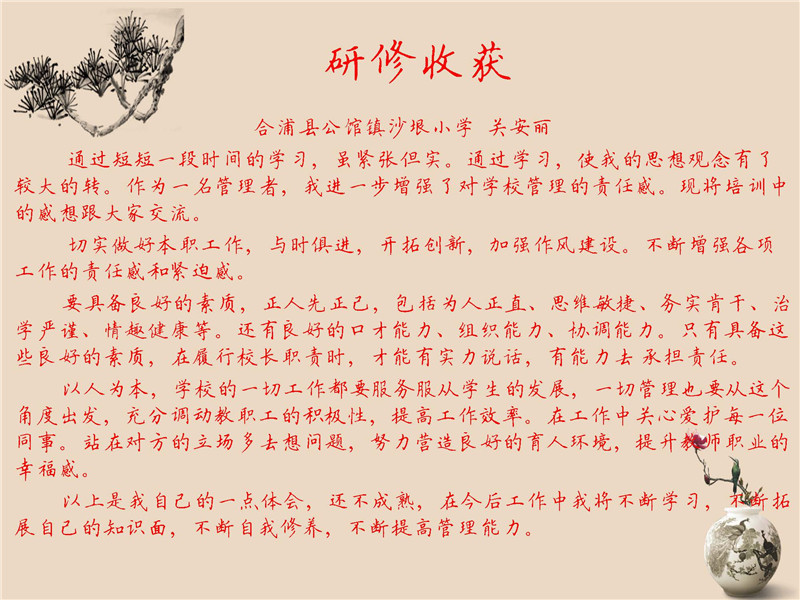 研修收获
合浦县公馆镇沙垠小学 关安丽
通过短短一段时间的学习，虽紧张但实。通过学习，使我的思想观念有了
较大的转。作为一名管理者，我进一步增强了对学校管理的责任感。现将培训中
的感想跟大家交流。
切实做好本职工作，与时俱进，开拓创新，加强作风建设。不断增强各项
工作的责任感和紧迫感。
要具备良好的素质，正人先正己，包括为人正直、思维敏捷、务实肯干、治
学严谨、情趣健康等。还有良好的口才能力、组织能力、协调能力。只有具备这
些良好的素质，在履行校长职责时，才能有实力说话，有能力去 承担责任。
以人为本，学校的一切工作都要服务服从学生的发展，一切管理也要从这个
角度出发，充分调动教职工的积极性，提高工作效率。在工作中关心爱护每一位
同事。站在对方的立场多去想问题，努力营造良好的育人环境，提升教师职业的
幸福感。
以上是我自己的一点体会，还不成熟，在今后工作中我将不断学习，不断拓
展自己的知识面，不断自我修养，不断提高管理能力。